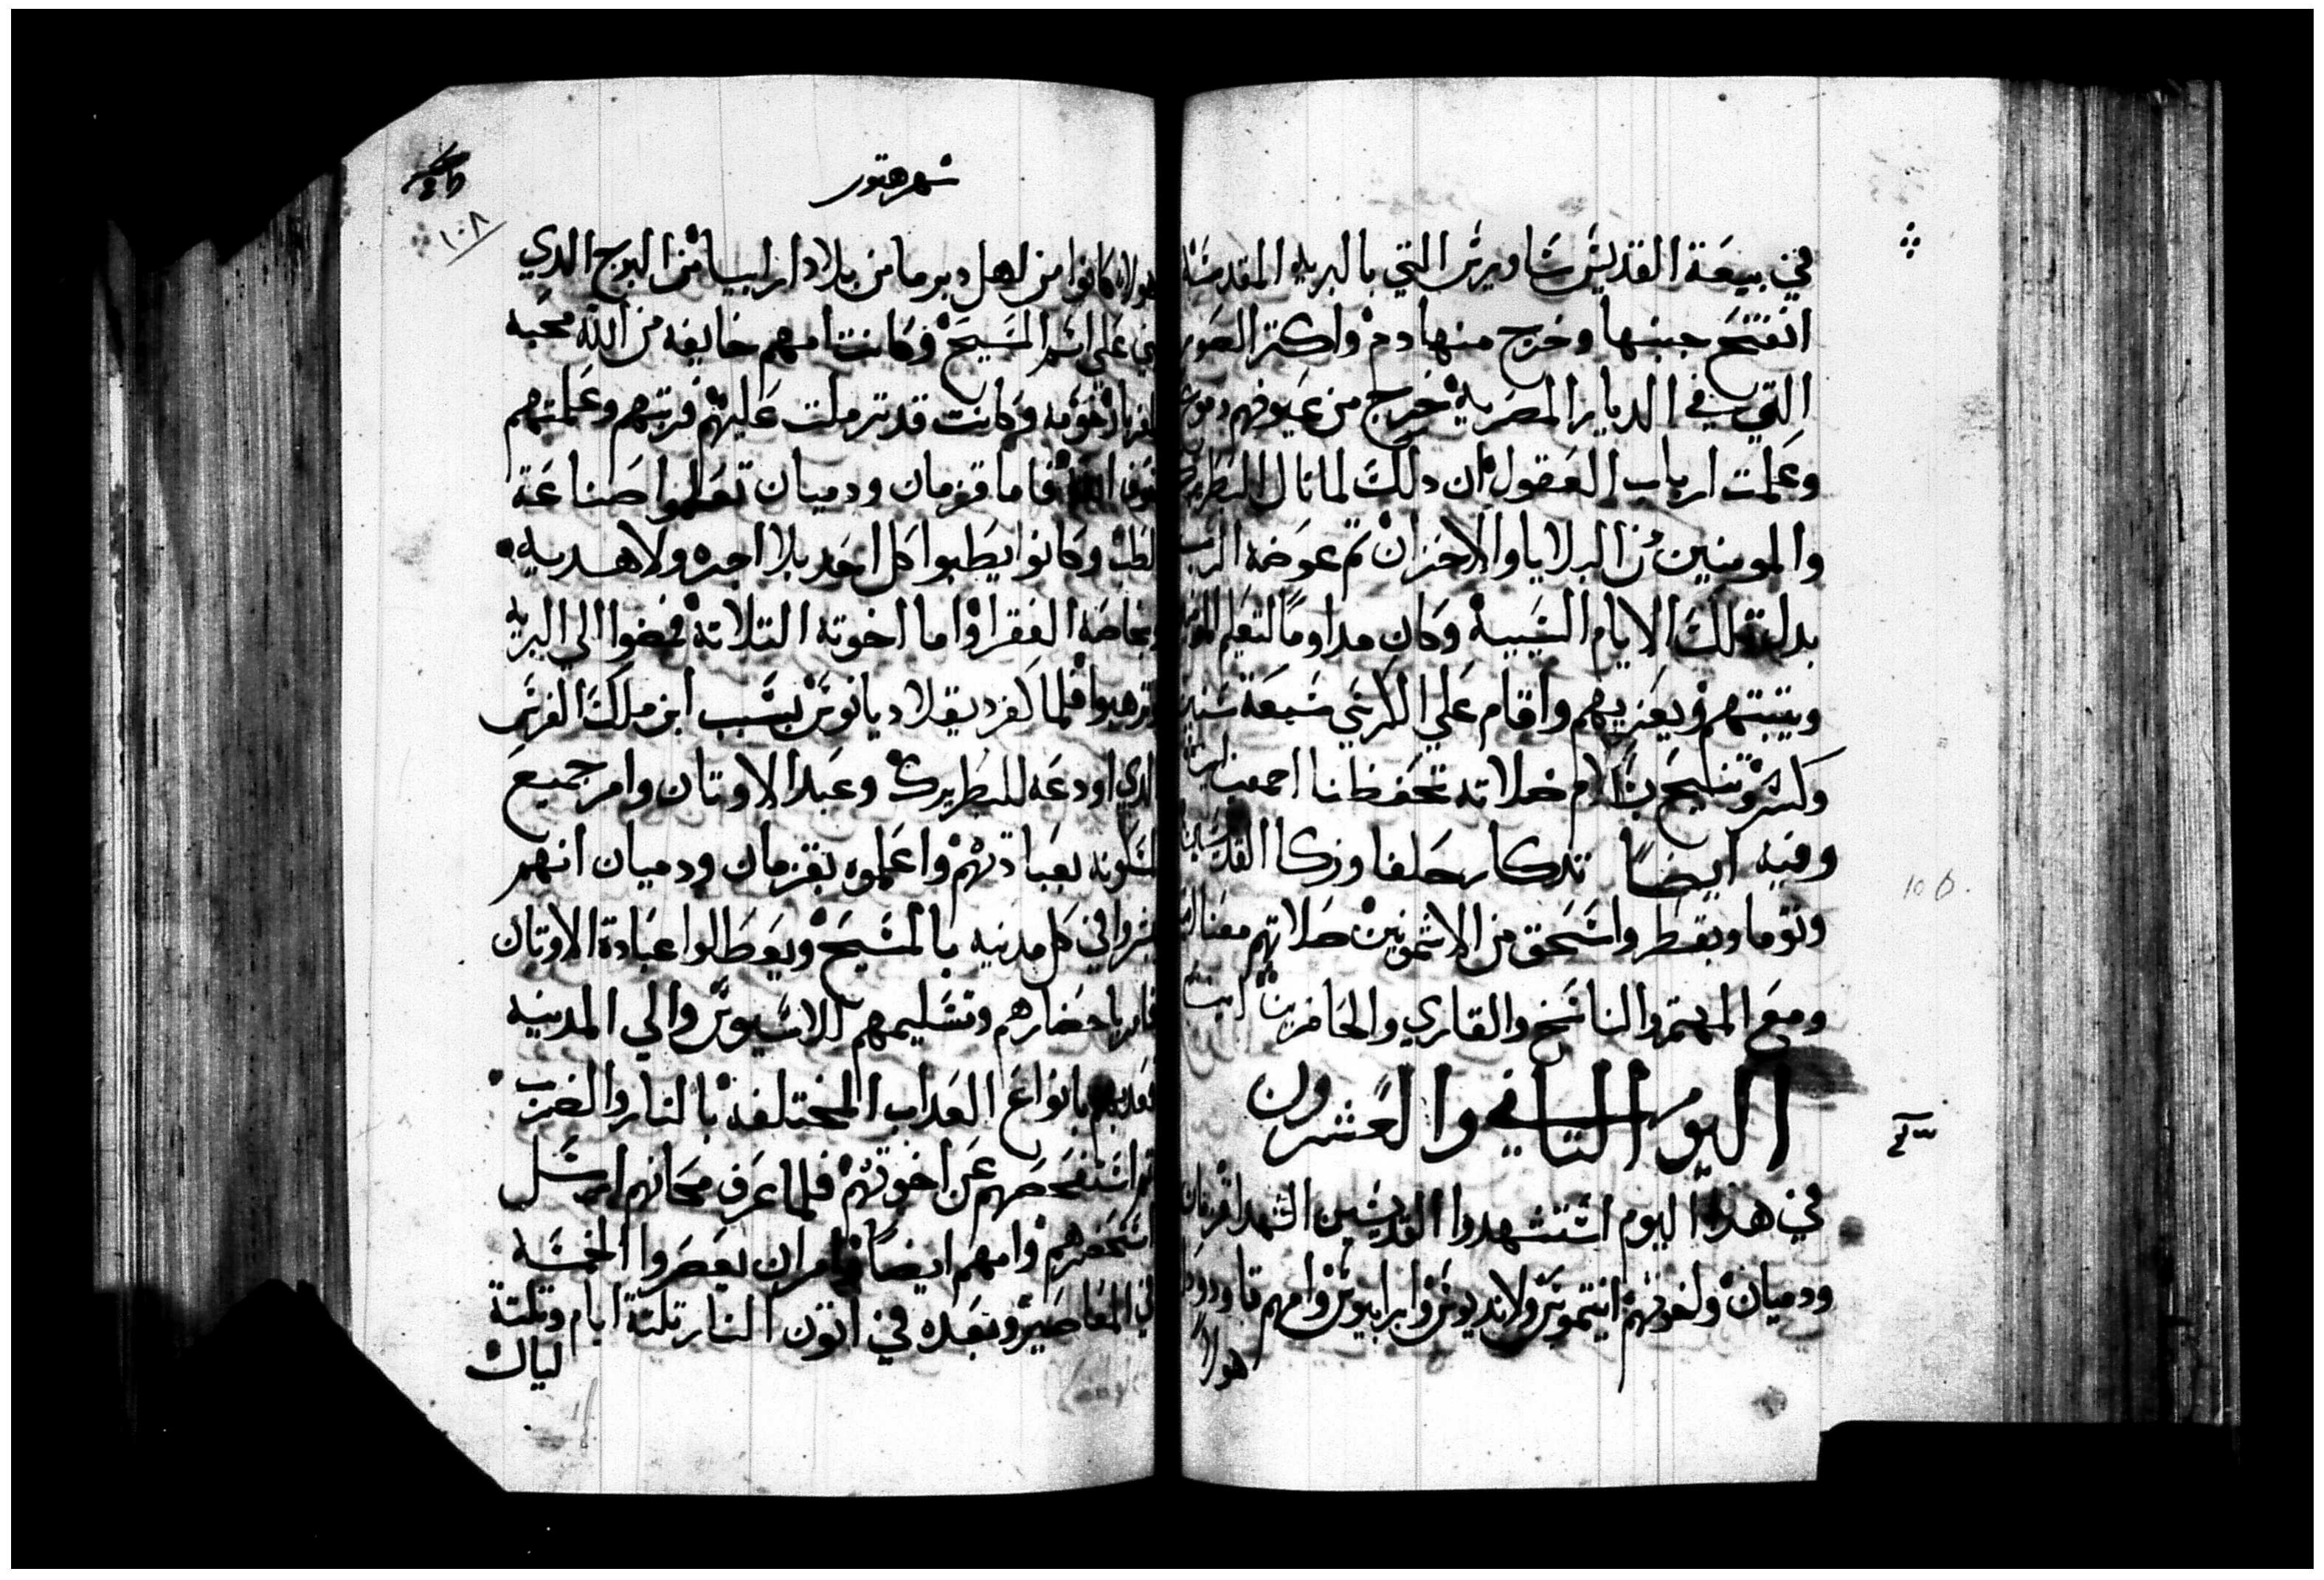 في بيعة القديس ساويرس التي بالبرية المقدسة
انفتح جبنها وخرج منها دم واكتر الصور
التي في الديار المصرية خرج من عيونهم دموع
وعلمت ارباب العقول ان دلك لما نال البطريرك
والمومنين من البلايا والاحزان تم عوضه الرب
بدل تلك الايام وكان مداوما لتعليم
ويتبتهم ويعزيهم واقام على الكرسي سبعة سنين
وكسر وتنيح بسلام صلاته تحفظنا اجمعين امين
وفيه ايضا تدكار حلفا وزكا القديسين
وتوما وبقطر واسحق من الاشمونين صلاتهم معنا
ومع المهتم والناسخ والقاري والحاضرين امين
اليوم التاني والعشرون
في هذا اليوم استشهدوا القديسين الشهدا قزمان
ودميان ولخوتهم انتيموس ولانديوس وابرابيوس وامهم تاودوده
هولا
شهر هتور
١٠٨
هولاء كانوا من اهل دبرما من بلاد ارابيا من البرج الدي
على اسم المسيح وكانت امهم خايفه من الله محبه
وكانت قد ترملت عليهم فربتهم وعلمتهم
فاما قزمان ودميان تعلموا صناعة
الطب وكانوا يطبوا كل احد بلا اجره ولا هديه
وبخاصة الفقرا واما اخوته التلاتة فمضوا الي البريه
وترهبوا فلما كفر ديقلاديانوس بسبب ابن ملك الفرس
الدي اودعه للبطريرك وعبد الاوتان وامر جميع
المسكونه بعبادتهم واعلموه بقزمان ودميان انهم
يبشروا في كل مدينه بالمسيح ويعطلوا عبادة الاوتان
فامر باحضارهم وتسليمهم للاسيوس والي المدينه
فعدبهم بانواع العداب المختلفه بالنار والضرب
تم استفحصهم عن اخوتهم فلما عرف مكانهم ارسل
استحضرهم وامهم ايضا وامر ان يعصروا الخمسه
في المعاصير وبعده في اتون النار تلتة ايام وتلتة
ليال
106.